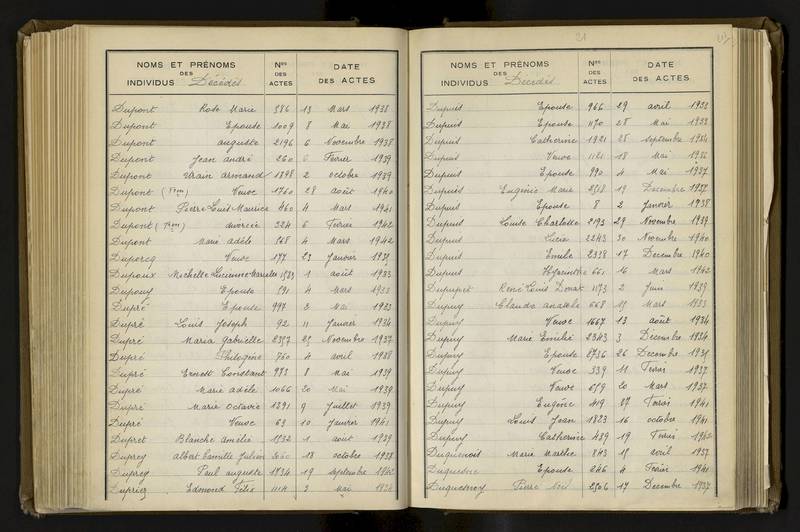 NOMS ET PRÉNOMS DES INDIVIDUS Décédés Nos DES ACTES DATE DES ACTES
Dupont Rose Marie 586 13 Mars 1938
Dupont Epouse 1009 8 Mai 1938
Dupont auguste 2196 6 Novembre 1938
Dupont Jean andré 260 6 Février 1939
Dupont armand 1898 2 octobre 1939
Dupont Veuve 1760 28 août 1940
Dupont Pierre Louis Maurice 460 4 Mars 1941
Dupont divorcée 324 6 Février 1942
Dupont Marie adèle 568 4 Mars 1942
Duporcq Veuve 177 23 Janvier
Dupoux Michelle Lucienne 1533 1 août 1933
Dupouy Epouse 591 4 Mars
Dupré Epouse 997 2 Mai
Dupré Louis Joseph 92 11 Janvier 1934
Dupré Maria Gabrielle 2357 25 Novembre 1937
Dupré Philogène 760 4 avril 1938
Dupré Ernest Constant 983 8 Mai 1939
Dupré Marie adèle 1066 20 Mai 1939
Dupré Marie Octavie 1391 9 Juillet 1939
Dupré Veuve 63 10 Janvier 1941
Dupret Blanche amélie 1532 1 août 1939
Duprey albert Camille Julien 18 octobre 1938
Duprey Paul auguste 1734 19 septembre 1942
Dupriez Edmond Félix 1114 3 Mai
21
NOMS ET PRÉNOMS DES INDIVIDUS Décédés Nos DES ACTES DATE DES ACTES
Dupuis Epouse 966 29 avril 1933
Dupuis Epouse 1170 28 Mai 1933
Dupuis Catherine 1921 28 septembre 1934
Dupuis Veuve 1121 18 Mai 1936
Dupuis Epouse 990 4 Mai 1937
Dupuis Eugénie Marie 2518 19 Décembre 1937
Dupuis Epouse 8 2 Janvier 1938
Dupuis Louise Charlotte 2193 29 Novembre 1939
Dupuis Lucia 2243 30 Novembre 1940
Dupuis Emile 2338 17 Décembre 1940
Dupuis Hyacinthe 661 16 Mars 1942
Dupuget René Louis Donat 1173 2 Juin 1939
Dupuy Claude anatole 668 15 Mars 1933
Dupuy Veuve 1667 13 août 1934
Dupuy Marie Emilie 2343 3 Décembre 1934
Dupuy Epouse 2736 26 Décembre 1935
Dupuy Veuve 339 11 Février 1937
Dupuy Veuve 659 20 Mars 1937
Dupuy Eugénie 419 27 Février 1941
Dupuy Louis Jean 1823 16 octobre 1941
Dupuy Catherine 429 19 Février 1942
Duquenois Marie Marthe 843 15 avril 1937
Duquesne Epouse 246 4 Février 1941
Duquesnoy Pierre 2506 17 Décembre 1937